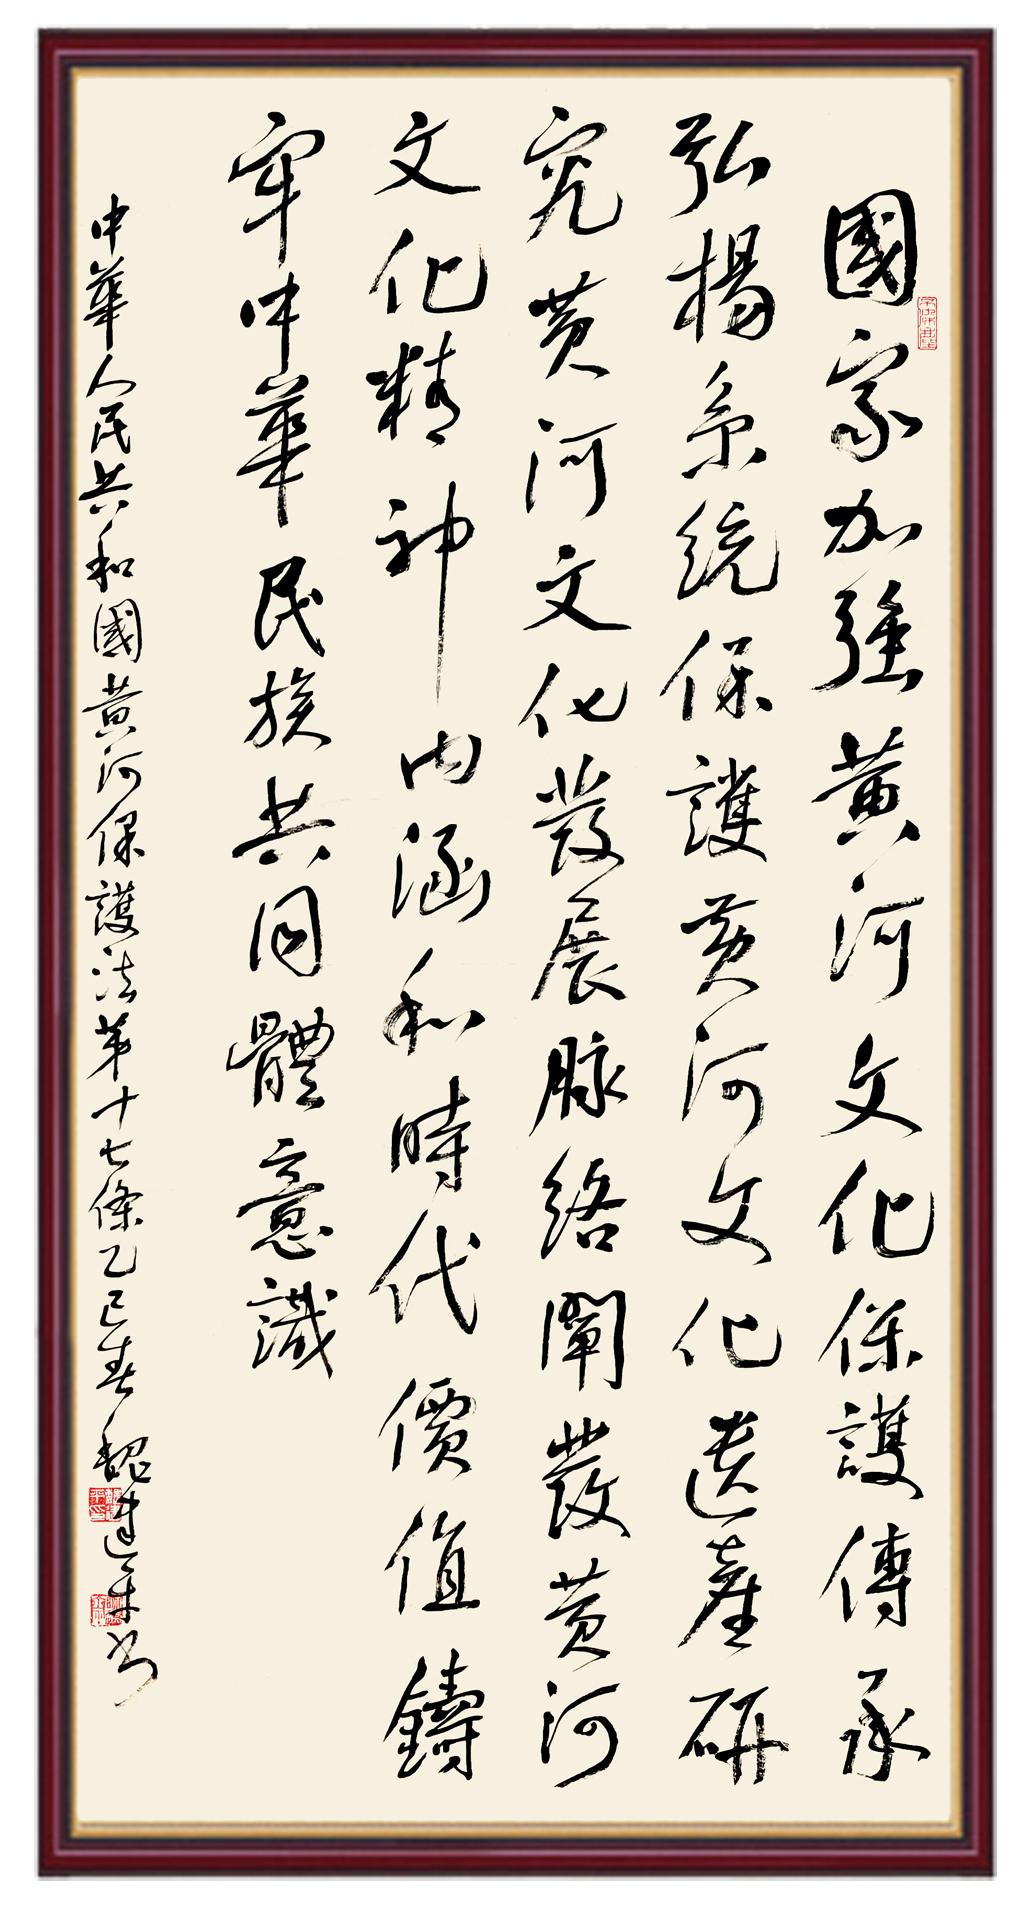 國家加強黃河文化保護傳承
弘揚系統保護黃河文化遺產研
究黃河文化發展脈絡闡發黃河
文化精神内涵和時代價值鑄
牢中華民族共同體意識
中華人民共和國黃河保護法第十七條乙巳春魏建書